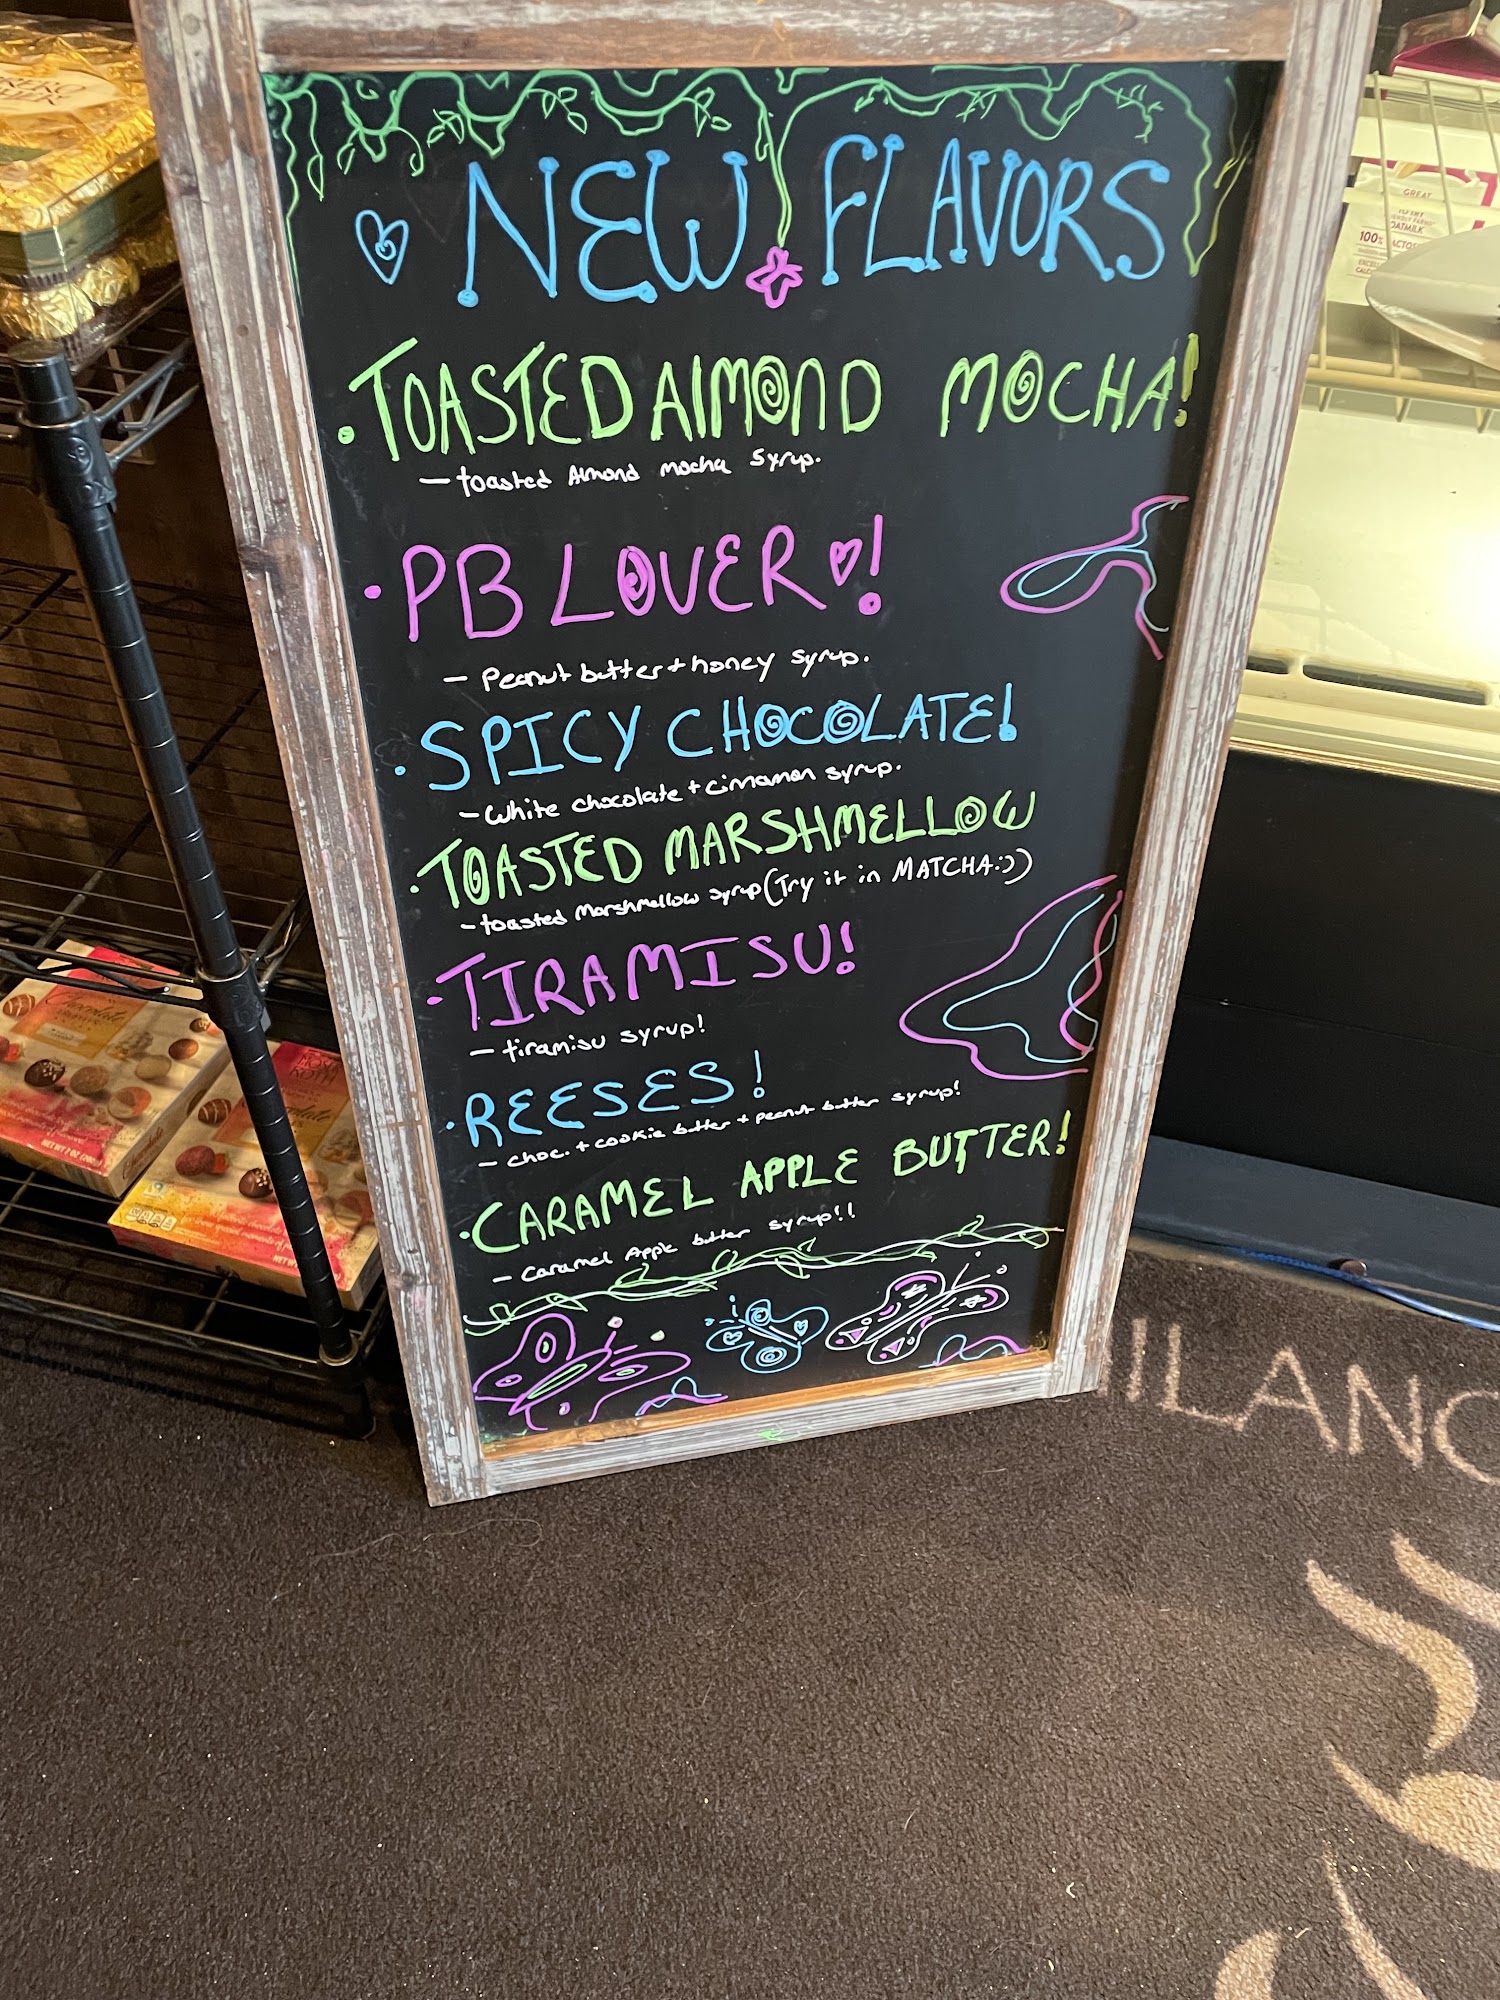 NEW FLAVORS
TOASTED AlMOND MOCHA!
- toasted Almond mocha syrup.
PB LOVER!
- Peanut butter + honey syrup.
SPICY CHOCOLATE!
- White chocolate + cinnamon syrup.
TOASTED MARSHMELLOW
- toasted Marshmellow syrup (Try it in MATCHA :))
TIRAMISU!
- tiramisu syrup!
REESES!
- choc. + cookie butter + peanut butter syrup!
CARAMEL APPLE BUTTER!
- Caramel Apple butter syrup!!
GREAT
OATMILK
100%
Chocolate
NET WT 7 OZ (200
Chocolate
ILANO